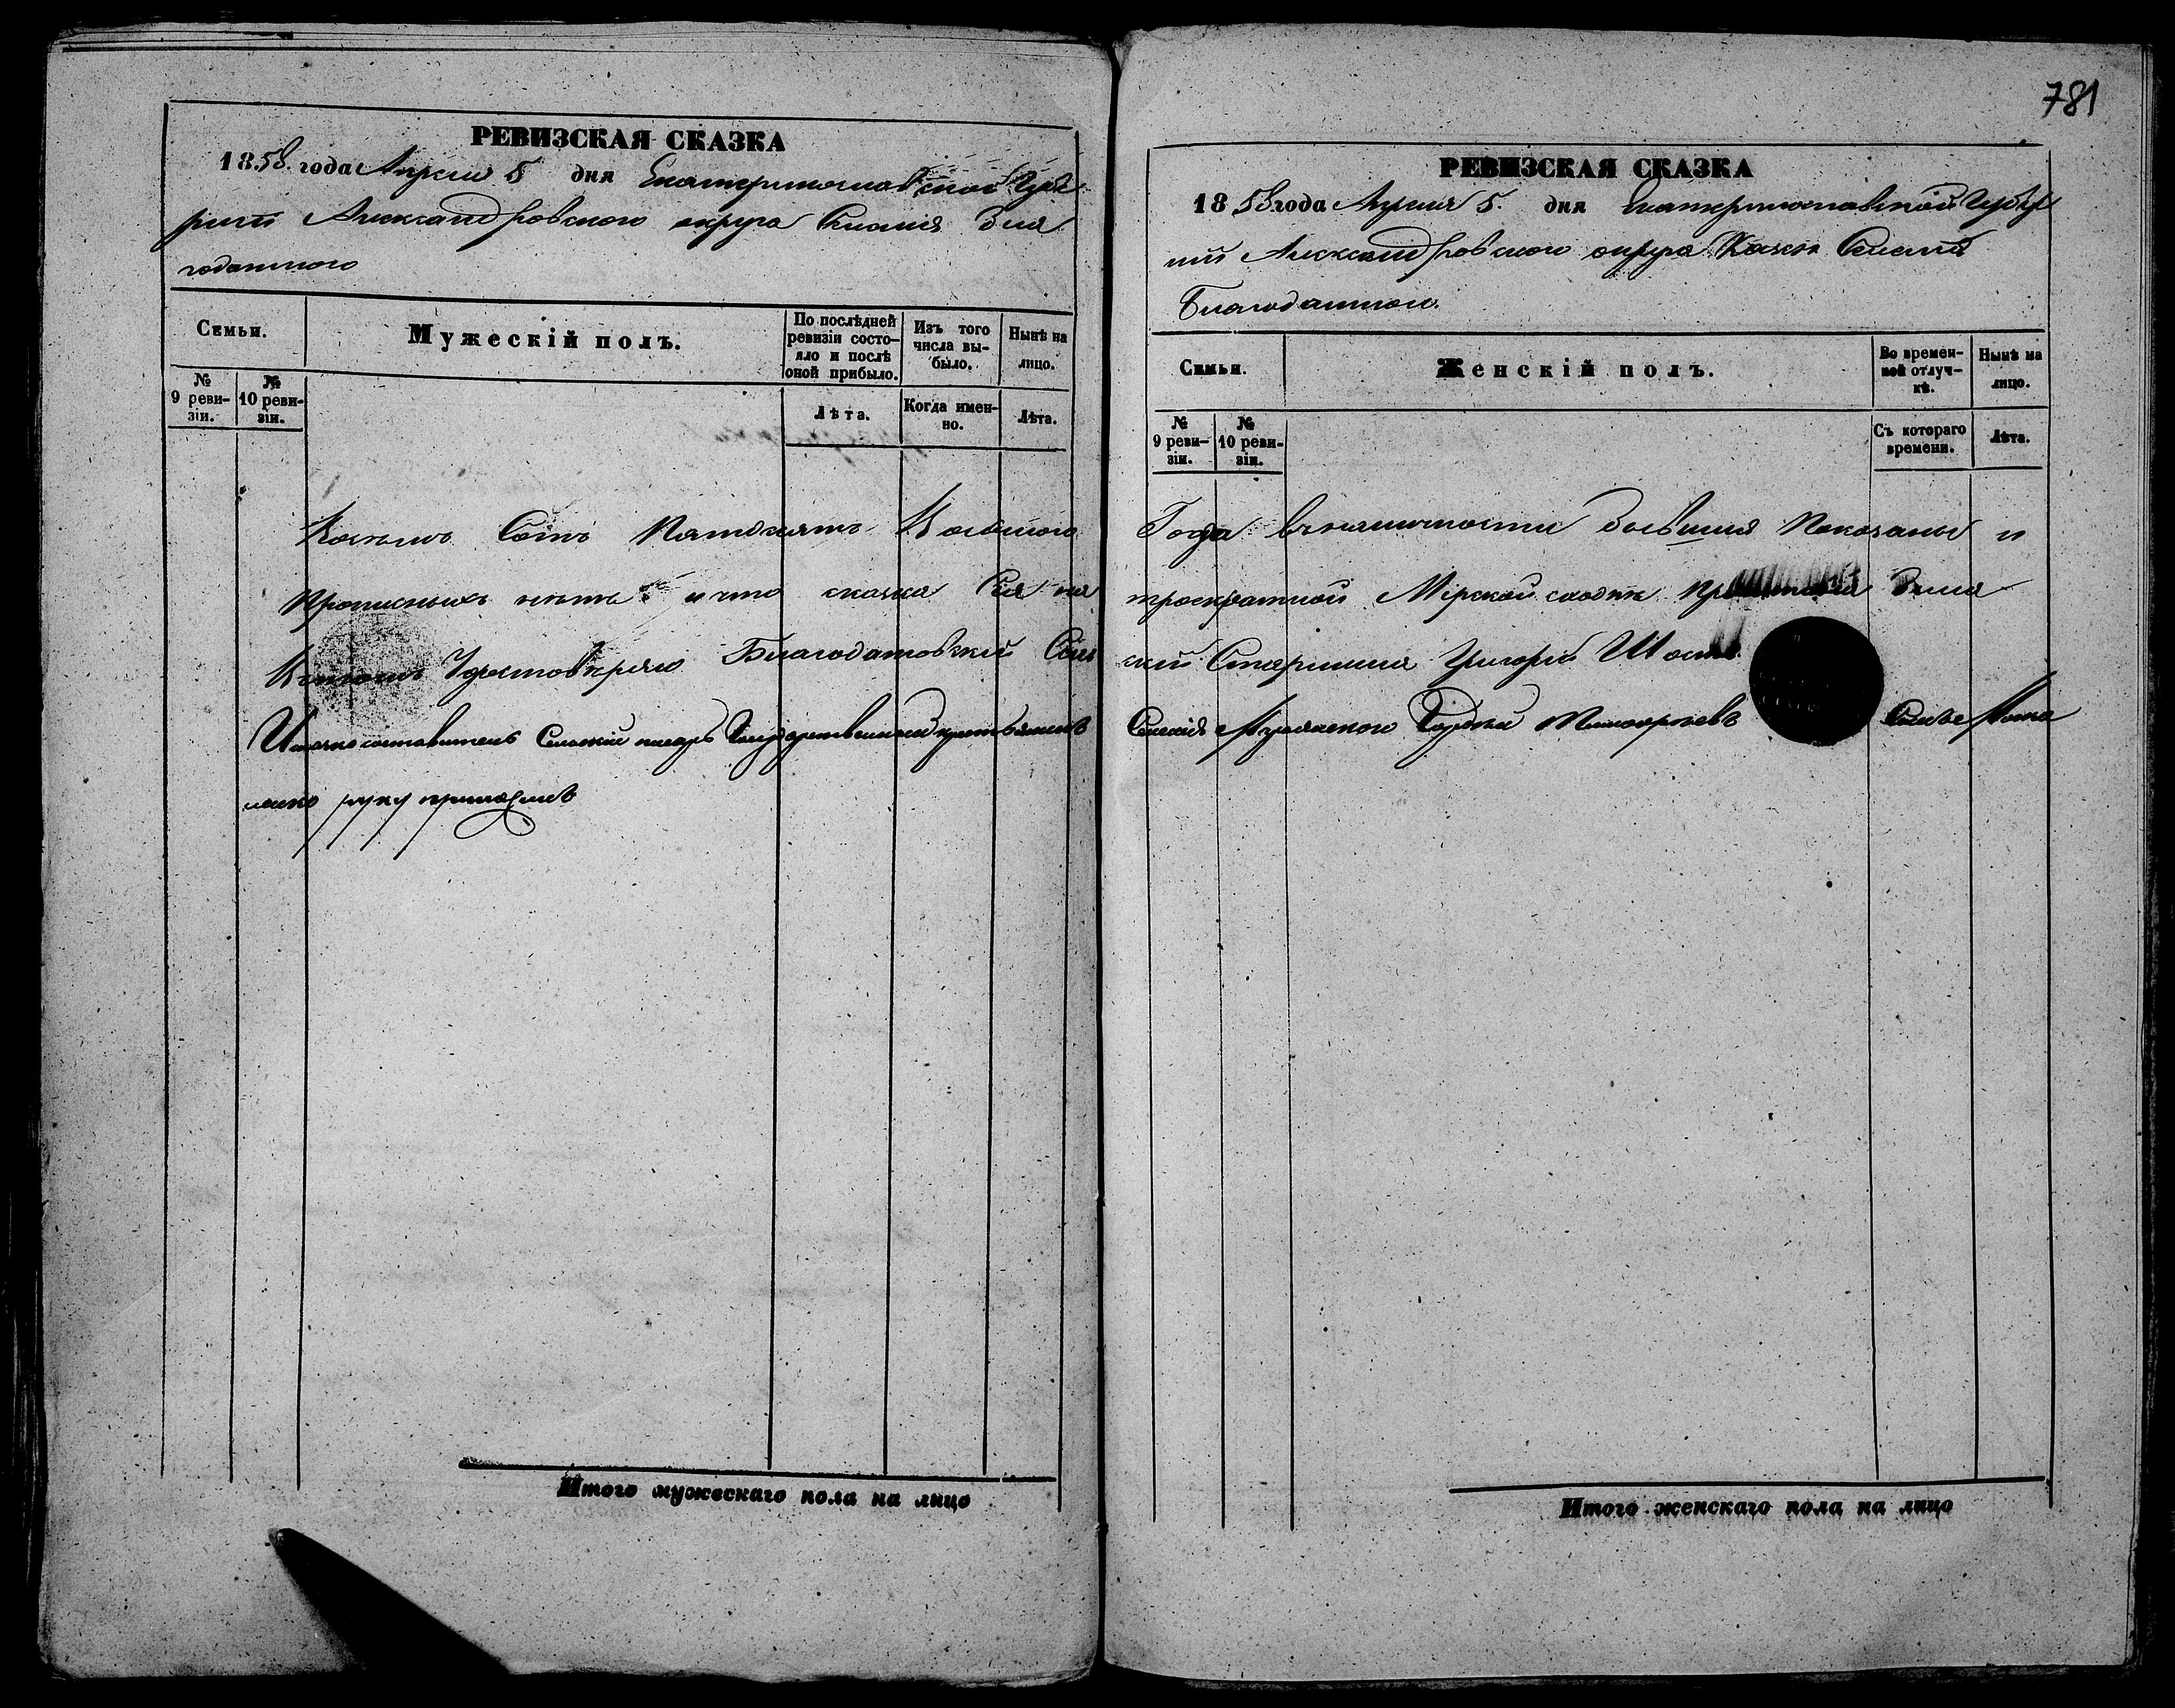 781
РЕВИЗСКАЯ СКАЗКА
1858 года Апреля 5 дня Екатеринославской Губе
рніи Александровского округа Селенія Бла
годатного
Семьи.
Мужескій полъ.
По послѣдней ревизіи состояло и послѣ оной прибыло.
Изъ того числа выбыло.
Нынѣ на лицо.
№ 9 ревизіи.
№ 10 ревизіи.
Лѣта.
Когда именно.
Лѣта.
Сотъ Пятдесятъ Восьмого
прописныхъ нѣтъ и что сказка Сія на
Удостовѣряю Благодатовскій Сель
составитель Сельскій писарь Государственный крестьянинъ
руку приложилъ
Итого мужескаго пола на лицо
РЕВИЗСКАЯ СКАЗКА
1858 года Апреля 5. дня Екатеринославской Губер
ніи Александровского округа Казен Селенія
Благодатного.
Семьи.
Женскій полъ.
Во временной отлучкѣ.
Нынѣ на лицо.
№ 9 ревизіи.
№ 10 ревизіи.
Съ котораго времени.
Лѣта.
Года въ наличности бывшія Показаны и
троекратной Мірской сходкѣ
скій Старшина Григорій
Селенія
Итого женскаго пола на лицо